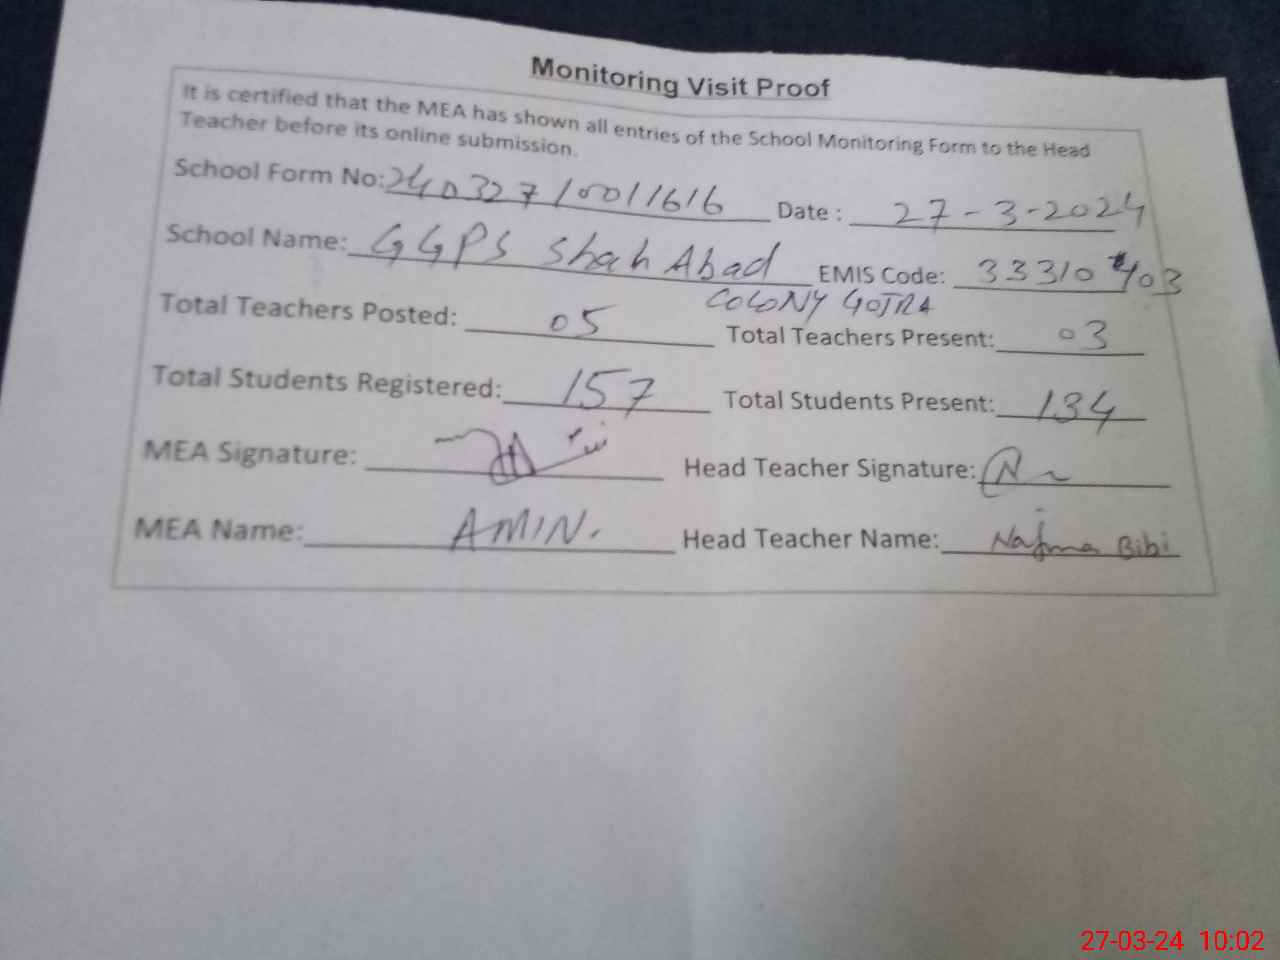 Monitoring Visit Proof
It is certified that the MEA has shown all entries of the School Monitoring Form to the Head
Teacher before its online submission.
School Form No: 24032710011616 Date : 27-3-2024
School Name: GGPS Shah Abad EMIS Code: 33310403
COLONY GOJRA
Total Teachers Posted: 05 Total Teachers Present: 03
Total Students Registered: 157 Total Students Present: 134
MEA Signature: Head Teacher Signature:
MEA Name: AMIN. Head Teacher Name: Najma Bibi
27-03-24 10:02